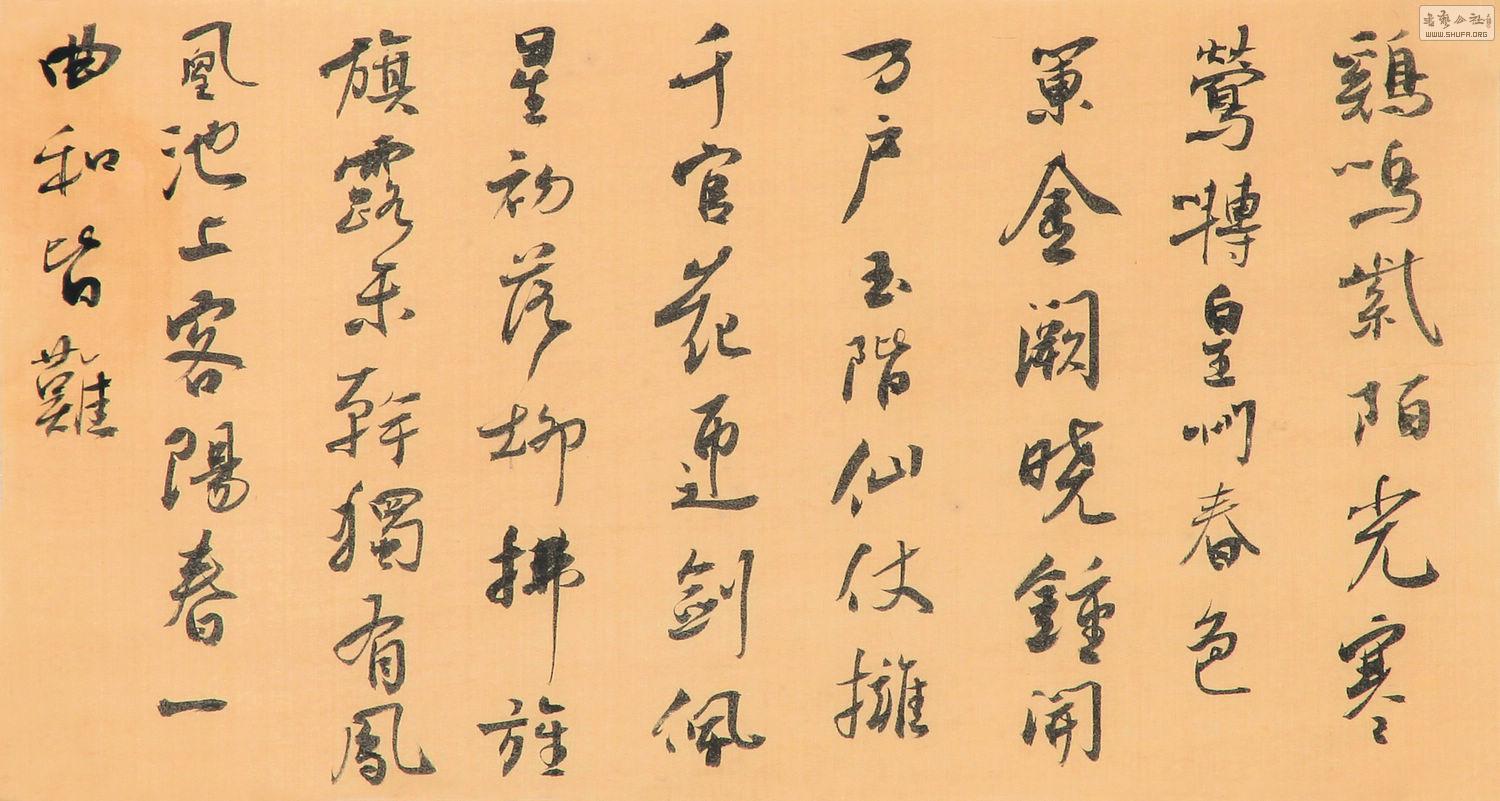 鷄鳴紫陌光寒
鶯囀皇州春色
闌金闕曉鐘開
万户玉階仙仗擁
千官花迎劍佩
星初落柳拂旌
旗露未幹獨有鳳
凰池上客陽春一
曲和皆難
書藝公社
WWW.SHUFA.ORG